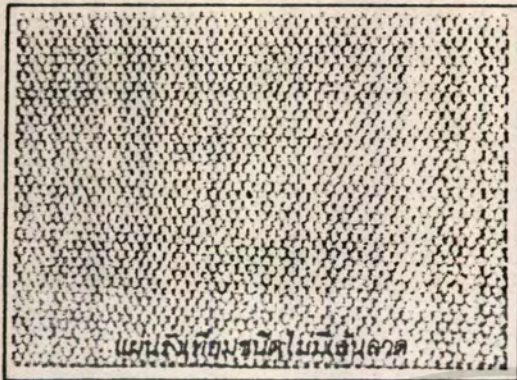 แผ่นรังเทียมชนิดไม่มีเส้นลวด